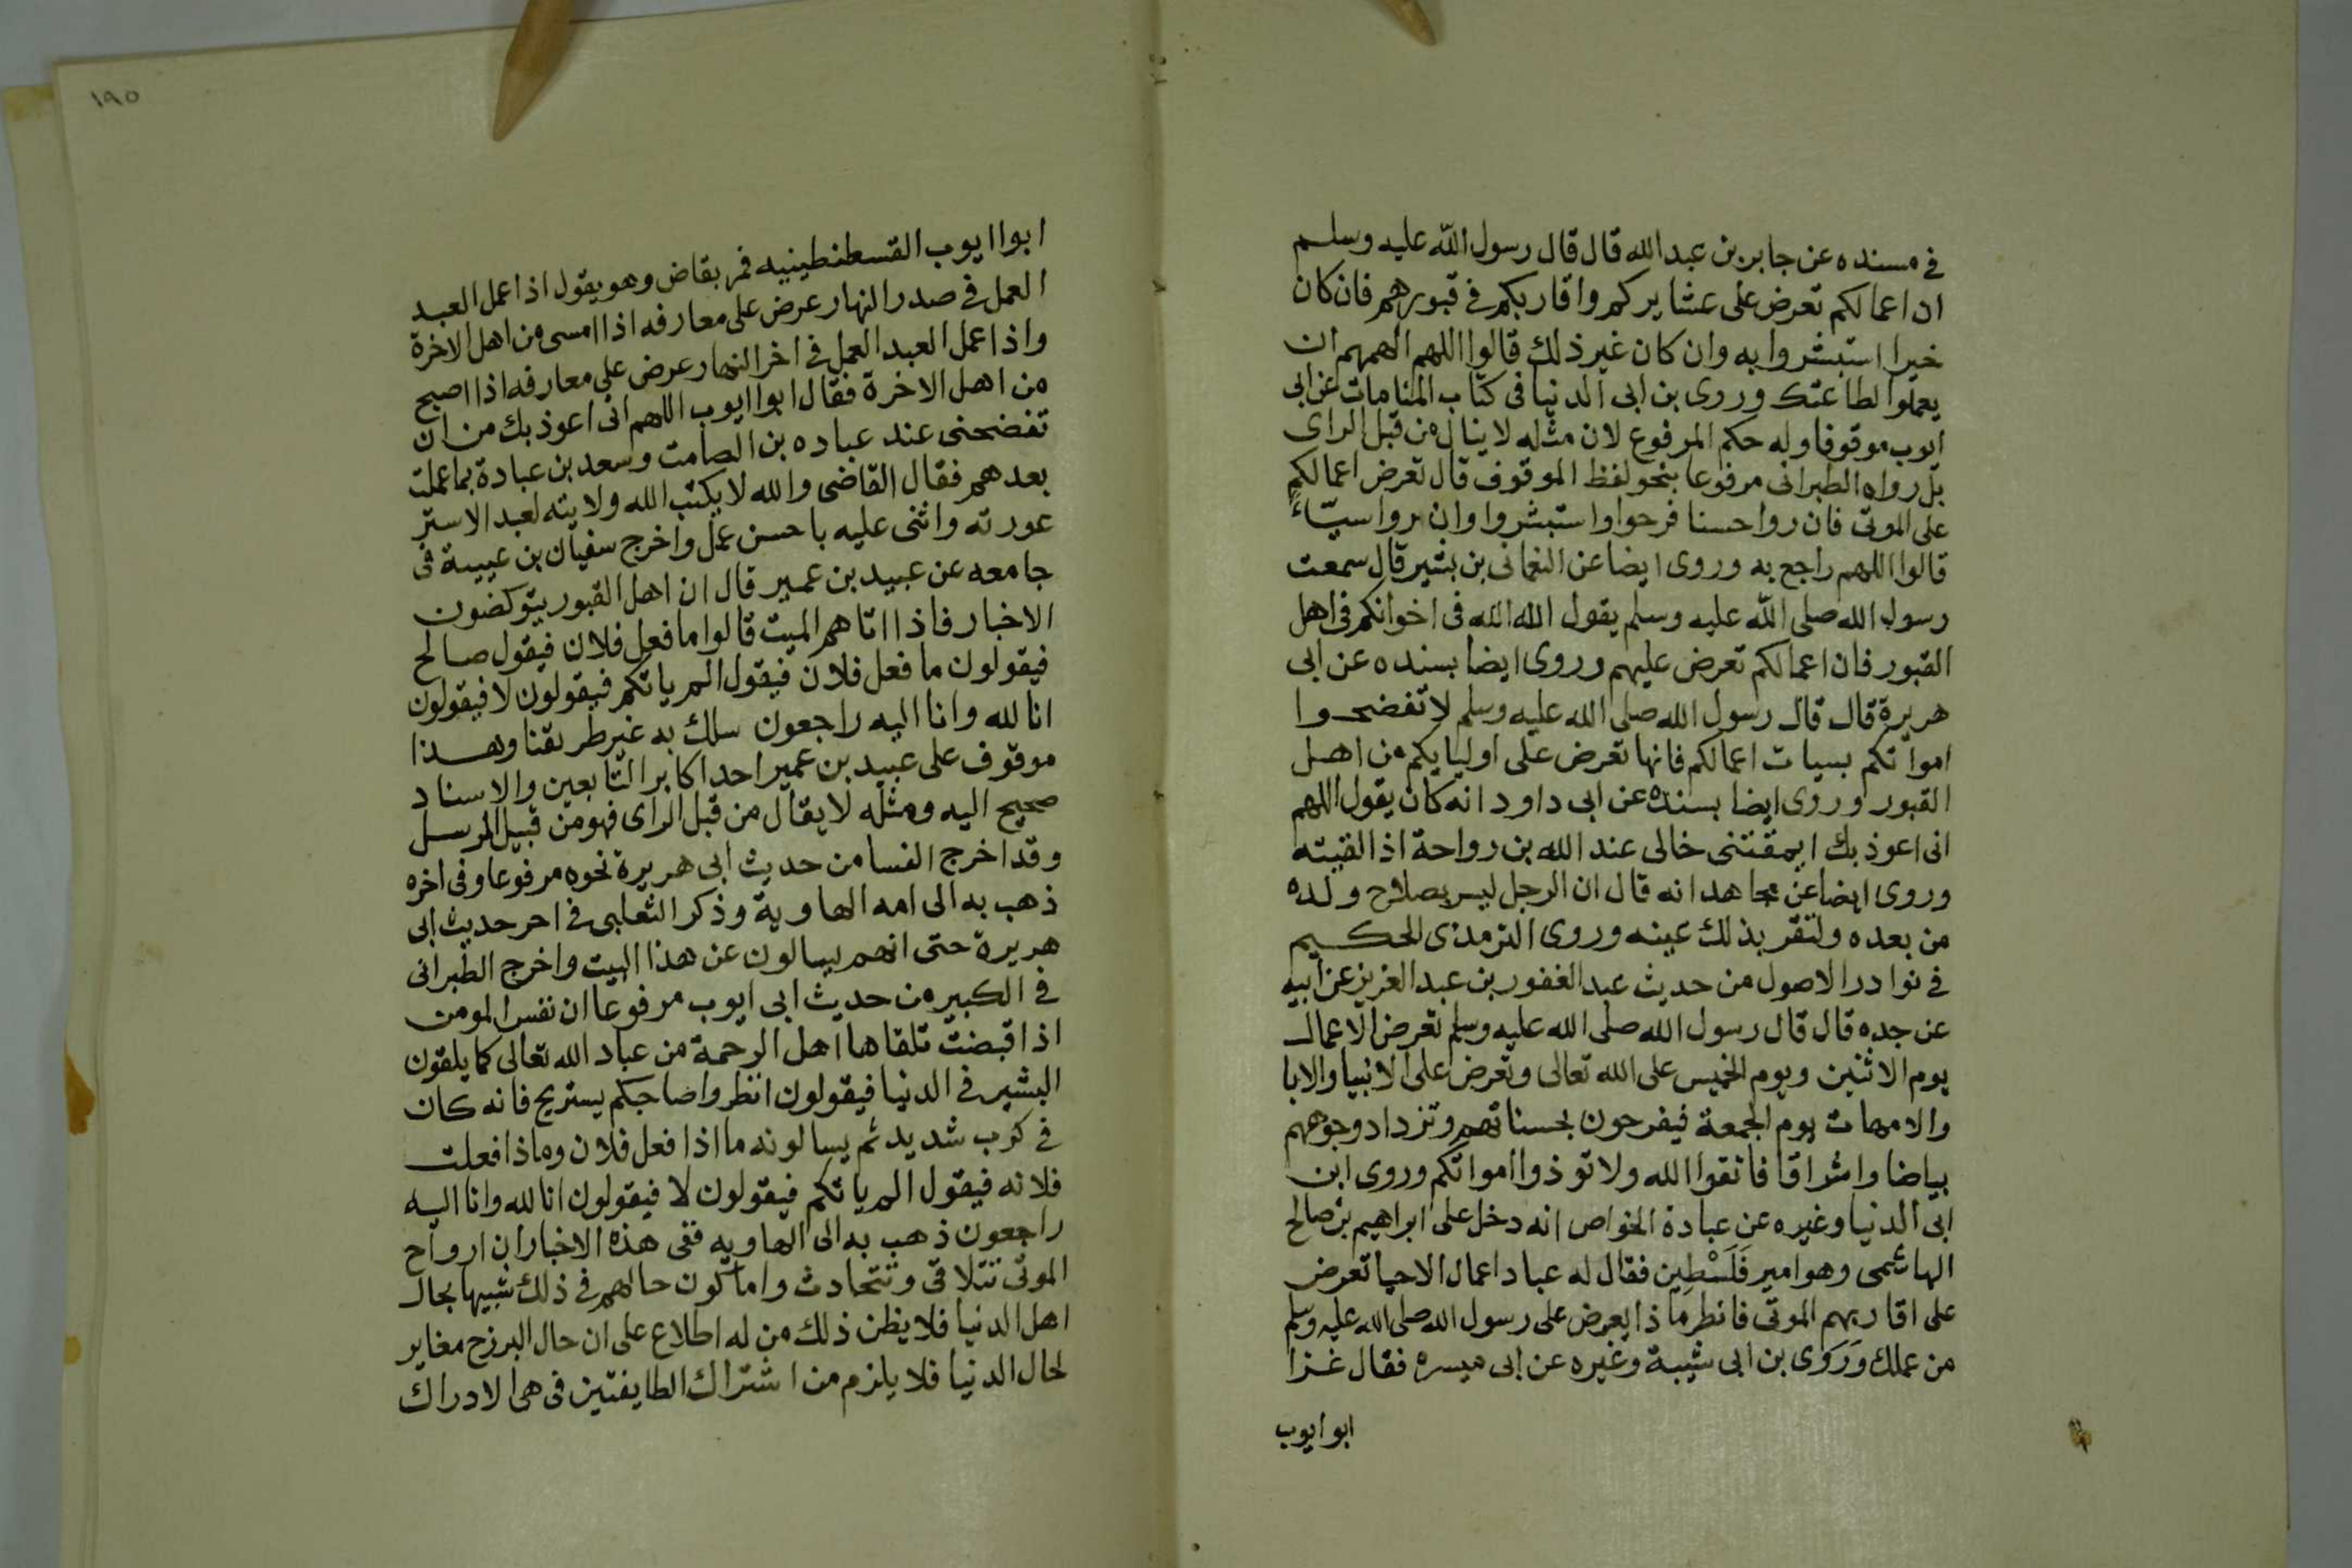 في مسنده عن جابر بن عبد الله قال قال رسول الله عليه وسلم
ان اعمالكم تعرض على عشايركم واقاربكم في قبورهم فان كان
خيرا استبشروا به وان كان غير ذلك قالوا اللهم الهمهم ان
يعملوا لطاعتك وروى بن ابى الدنيا فى كتاب المنامات عن ابى
ايوب موقوفا وله حكم المرفوع لان مثله لا ينال من قبل الراى
بل رواه الطبرانى مرفوعا بنحو لفظ الموقوف قال تعرض اعمالكم
على الموتى فان روا حسنا فرحوا واستبشروا وان روا سيّاءً
قالوا اللهم راجع به وروى ايضا عن النعمانى بن بشير قال سمعت
رسول الله صلى الله عليه وسلم يقول الله الله فى اخوانكم فى اهل
القبور فان اعمالكم تعرض عليهم وروى ايضا بسنده عن ابى
هريرة قال قال رسول الله صلى الله عليه وسلم لا تفضحوا
امواتكم بسيات اعمالكم فانها تعرض على اوليايكم من اهل
القبور وروى ايضا بسنده عن ابى داود انه كان يقول اللهم
انى اعوذ بك ايمقتنى خالى عند الله بن رواحة اذا لقيته
وروى ايضا عن مجاهد انه قال ان الرجل ليسر بصلاح ولده
من بعده ولتقر بذلك عينه وروى الترمذى الحكيم
فى نوادر الاصول من حديث عبد الغفور بن عبد العزيز عن ابيه
عن جده قال قال رسول الله صلى الله عليه وسلم تعرض الاعمال
يوم الاثنين ويوم الخميس على الله تعالى وتعرض على الانبيا والابا
والامهات يوم الجمعة فيفرحون بحسناتهم وتزداد وجوههم
بياضا واشراقا فاتقوا الله ولا توذوا امواتكم وروى ابن
ابى الدنيا وغيره عن عبادة الخواص انه دخل على ابراهيم بن صالح
الهاشمى وهو امير فَلَسْطِين فقال له عباد اعمال الاحيا تعرض
على اقاربهم الموتى فانظر ماذا يعرض على رسول الله صلى الله عليه وسلم
من عملك وَرَوى بن ابى شيبة وغيره عن ابى ميسره فقال غزا
ابو ايوب
١٩٥
ابوا ايوب القسطنطينيه فمر بقاض وهو يقول اذا عمل العبد
العمل في صدر النهار عرض على معارفه اذا امسى من اهل الاخرة
واذا عمل العبد العمل في اخر النهار عرض على معارفه اذا اصبح
من اهل الاخرة فقال ابوا ايوب اللهم انى اعوذ بك من ان
تفضحنى عند عباده بن الصامت وسعد بن عبادة بما عملت
بعدهم فقال القاضى والله لا يكتب الله ولايته لعبد الا ستر
عورته واثنى عليه باحسن عمل واخرج سفيان بن عيينة فى
جامعه عن عبيد بن عمير قال ان اهل القبور يتوكفون
الاخبار فاذا اتاهم الميت قالوا ما فعل فلان فيقول صالح
فيقولون ما فعل فلان فيقول الم ياتكم فيقولون لا فيقولون
انا لله وانا اليه راجعون سلك به غير طريقنا وهذا
موقوف على عبيد بن عمير احد اكابر التابعين والاسناد
صحيح اليه ومثله لا يقال من قبل الراى فهو من قبيل المرسل
وقد اخرج النسا من حديث ابى هريرة نحوه مرفوعا وفى اخره
ذهب به الى امه الهاوية وذكر الثعلبى فى اخر حديث ابى
هريرة حتى انهم يسالون عن هذا البيت واخرج الطبرانى
فى الكبير من حديث ابى ايوب مرفوعا ان نفس المومن
اذا قبضت تلقاها اهل الرحمة من عباد الله تعالى كما يلقون
البشير فى الدنيا فيقولون انظروا صاحبكم يستريح فانه كان
فى كرب شديد ثم يسالونه ما اذا فعل فلان وماذا فعلت
فلانه فيقول الم ياتكم فيقولون لا فيقولون انا لله وانا اليه
راجعون ذهب به الى الهاويه ففى هذه الاخبار ان ارواح
الموتى تتلاقى وتتحادث واما كون حالهم فى ذلك شبيها بحال
اهل الدنيا فلا يظن ذلك من له اطلاع على ان حال البرزح مغاير
لحال الدنيا فلا يلزم من اشتراك الطايفتين فى هى الادراك